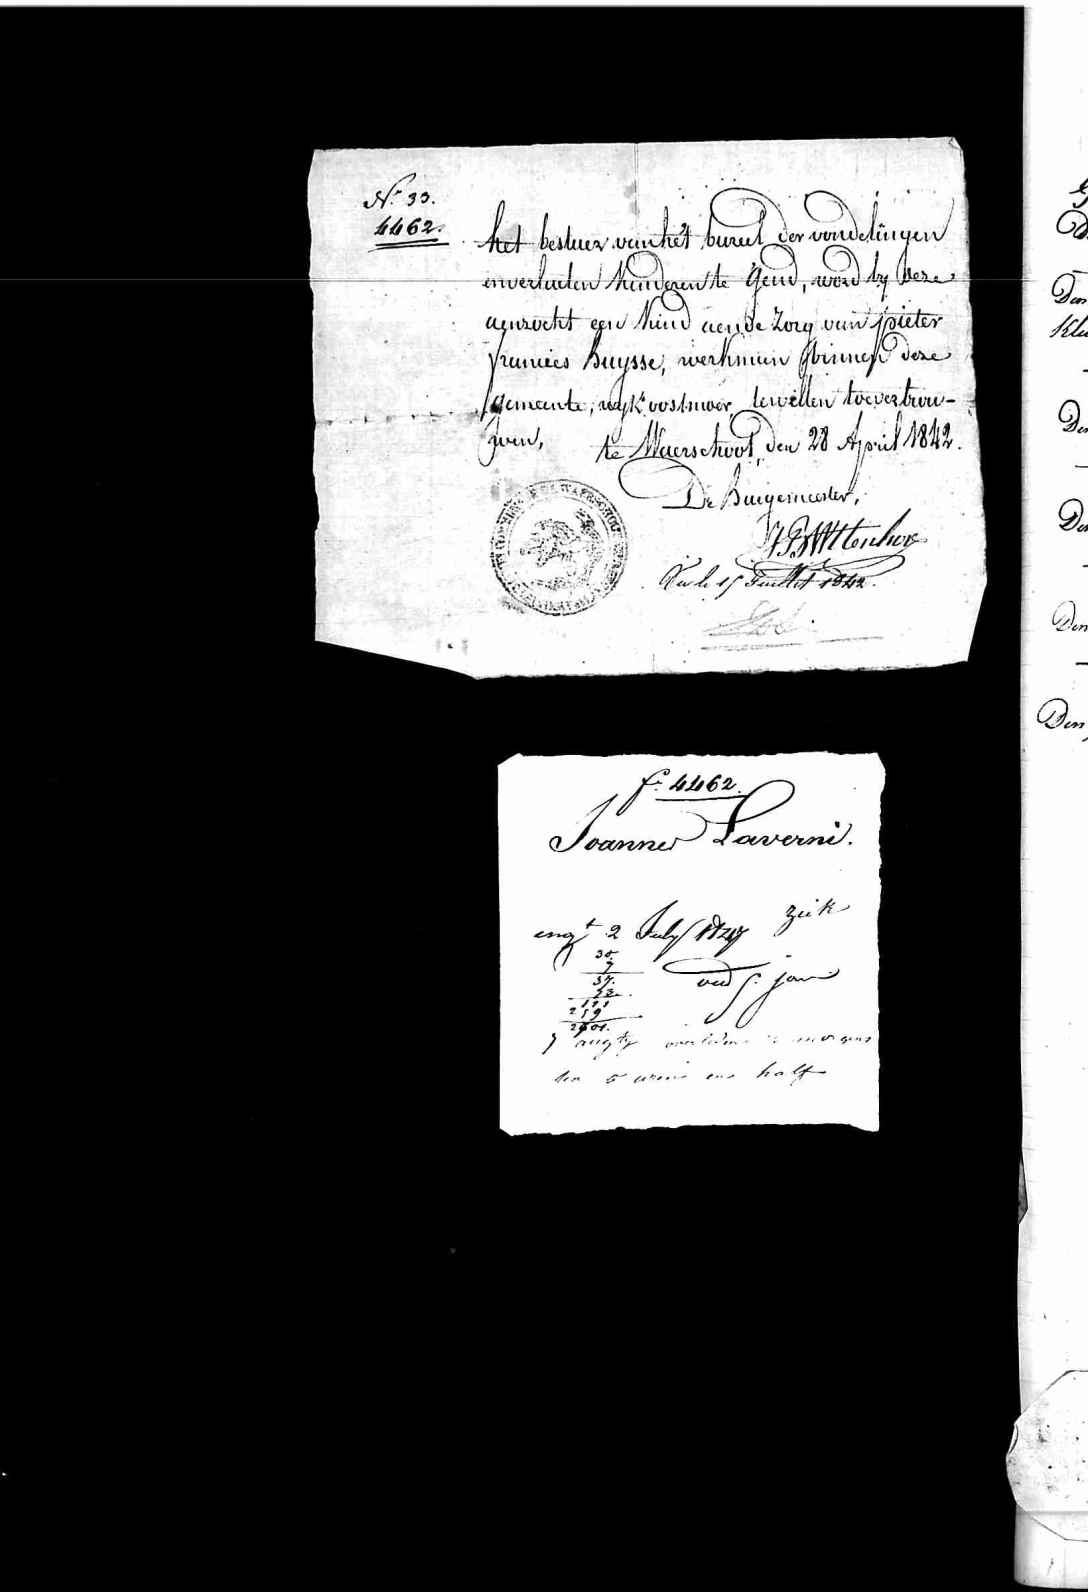 N.º 33.
4462.
het bestuer van het bureel der vondelingen
en verlaeten kinderen te Gend, word by deze
aenzocht een kind aen de zorg van pieter
francies Buysse, werkman binnen deze
gemeente, wyk oostmoer, te willen toevertrou-
wen,
te Waerschoot, den 28 April 1842.
De Burgemeester,
Vu le 15 Juillet 1842.
f. 4462.
Joannes Laverni.
ziek
2 July
30.
7
37.
oud 5. jaar
121
259
7 overleden 's morgens
ten 5 uren en half
Den
Den
Den
Den